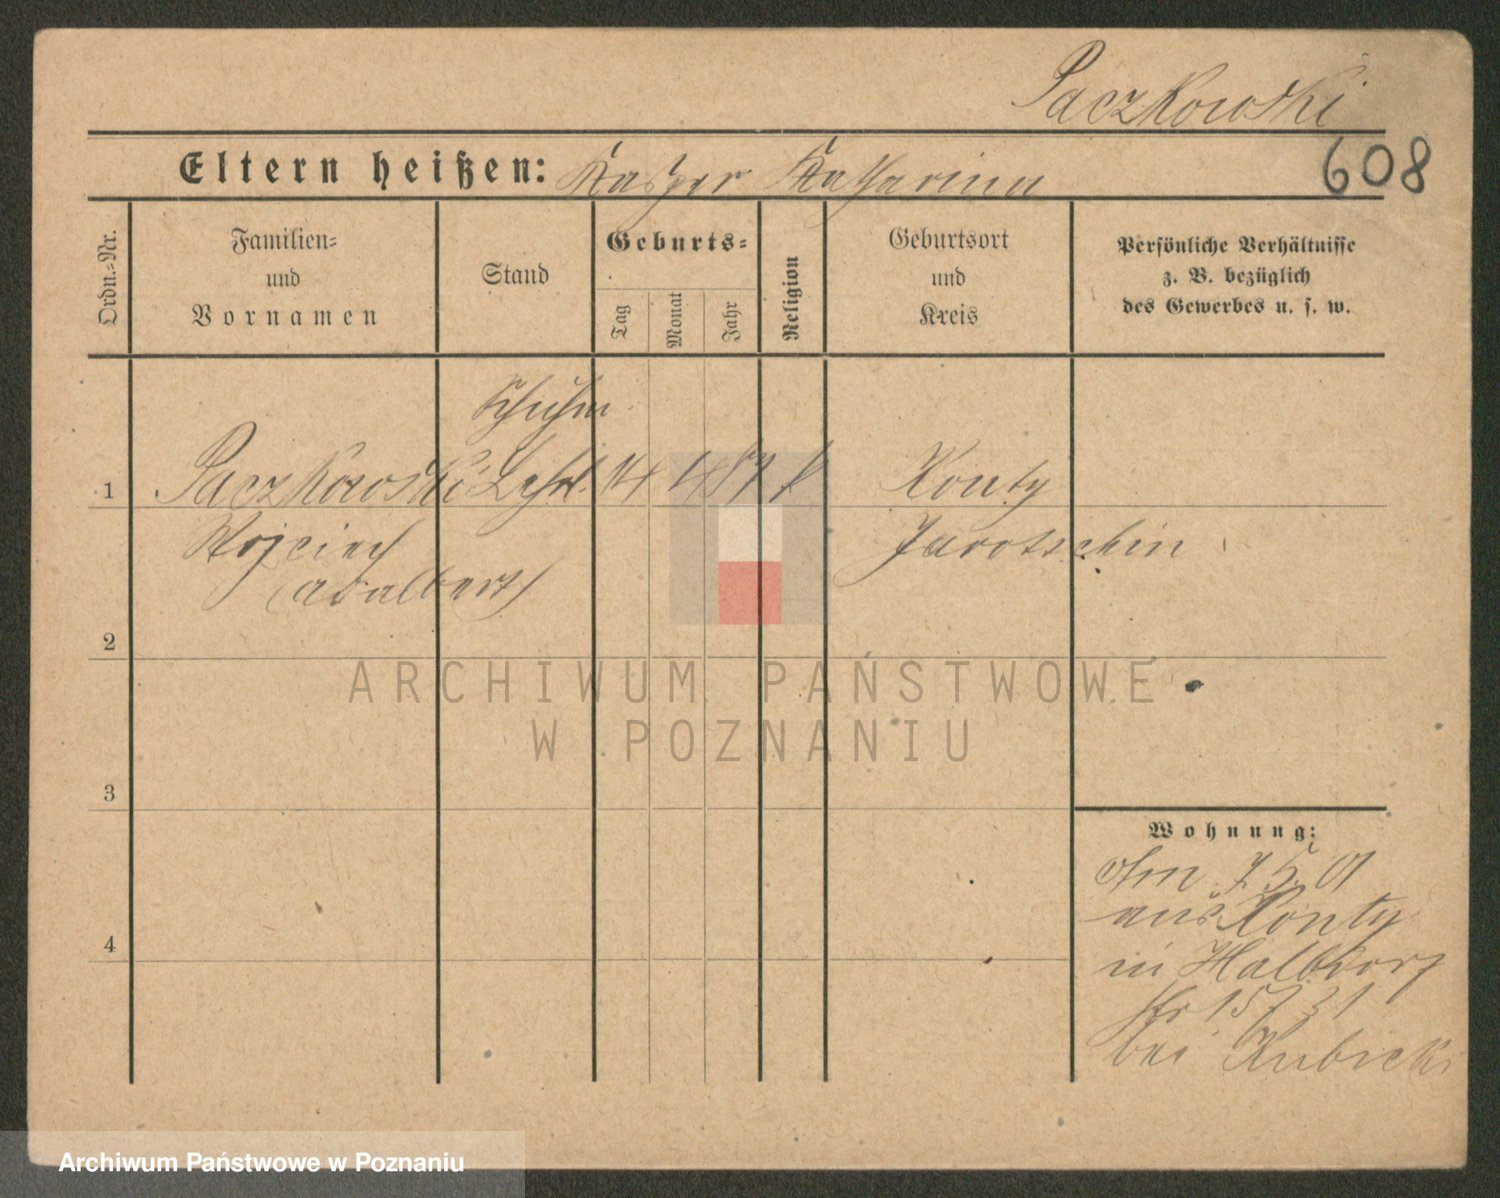 Paczkowski
608
Eltern heißen: Kasper Katharina
Ordn.-Nr.
Familien-
und
Vornamen
Stand
Geburts-
Tag
Monat
Jahr
Religion
Geburtsort
und
Kreis
Persönliche Verhältnisse
z. B. bezüglich
des Gewerbes u. s. w.
Schuhm.
1 Paczkowski Lehrl. 14 4 87 k Konty
Wojciech Jarotschin
(Adalbert)
2
3
4
Wohnung:
7.5.01
aus Konty
in Halbdorf
str 15
bei Kubicki
ARCHIWUM PAŃSTWOWE
W POZNANIU
Archiwum Państwowe w Poznaniu